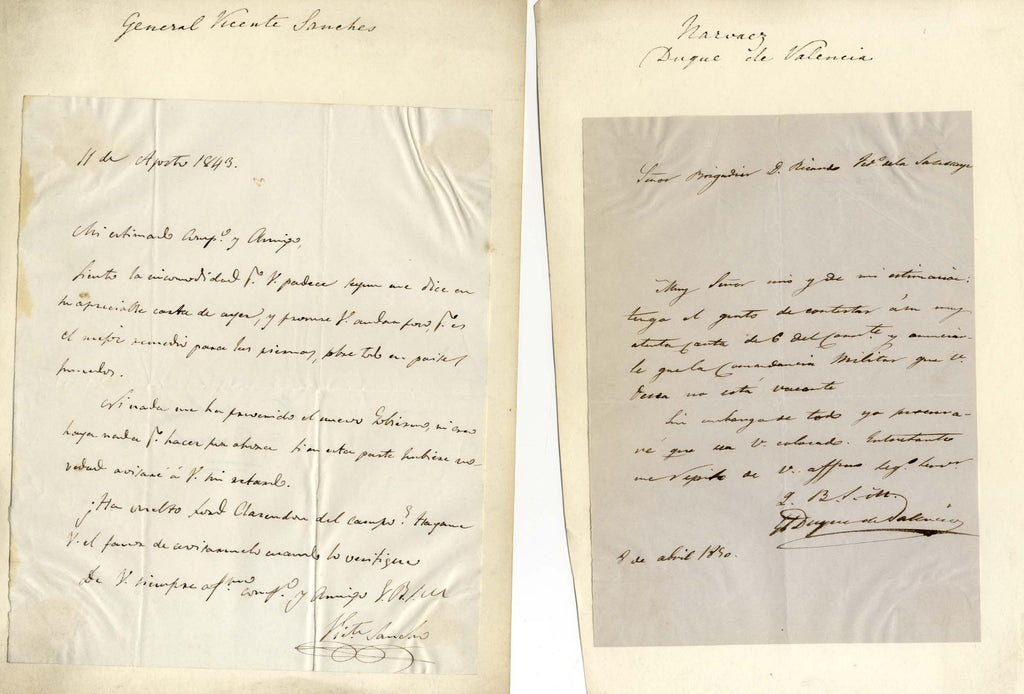 General Vicente Sanches
11 de Agosto 1843.
Mi estimado Comp.o y Amigo,
Siento la incomodidad q.e V. padece segun me dice en
su apreciable carta de ayer, y procure V. andar porq.e es
el mejor remedio para las piernas, sobre todo en paises
humedos.
Asi nada me ha prevenido el nuevo Gobierno, ni creo
haya nada q.e hacer por ahora. Si en esta parte hubiese no-
vedad avisaré á V. sin retardo.
¿Ha vuelto Lord Clarendon del campo? Hagame
V. el favor de avisarmelo cuando lo verifique
De V. siempre af.mo comp.o y Amigo
Vic.te Sancho
Narvaez
Duque de Valencia
Señor Brigadier D. Ricardo de la
Muy Señor mio y de mi estimacion:
tengo el gusto de contestar á su muy
atenta carta de 6 del Corr.te y anunciar-
le que la Comandancia Militar que V.
desea no está vacante
Sin embargo de todo yo procura-
ré que sea V. colocado. Entretanto
me repito de V. affmo seg.o serv.r
Q. B. S. M.
El Duque de Valencia
8 de abril 1850.